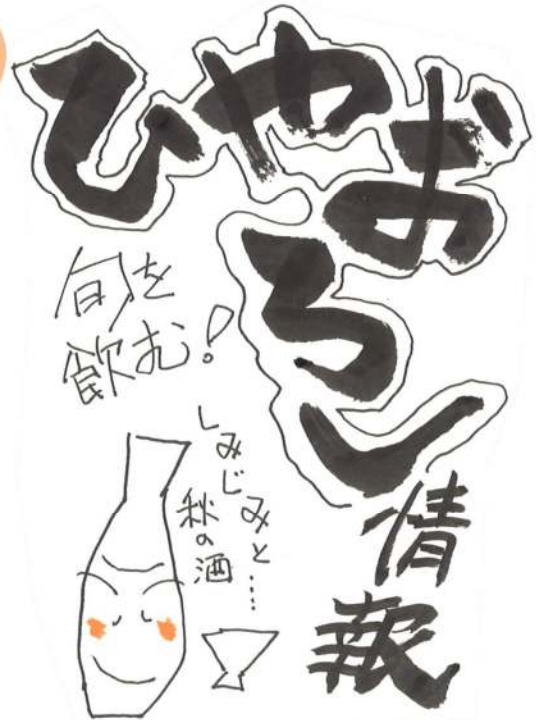 ひやおろし
情報
旬を
飲む!
しみじみと……
秋の酒